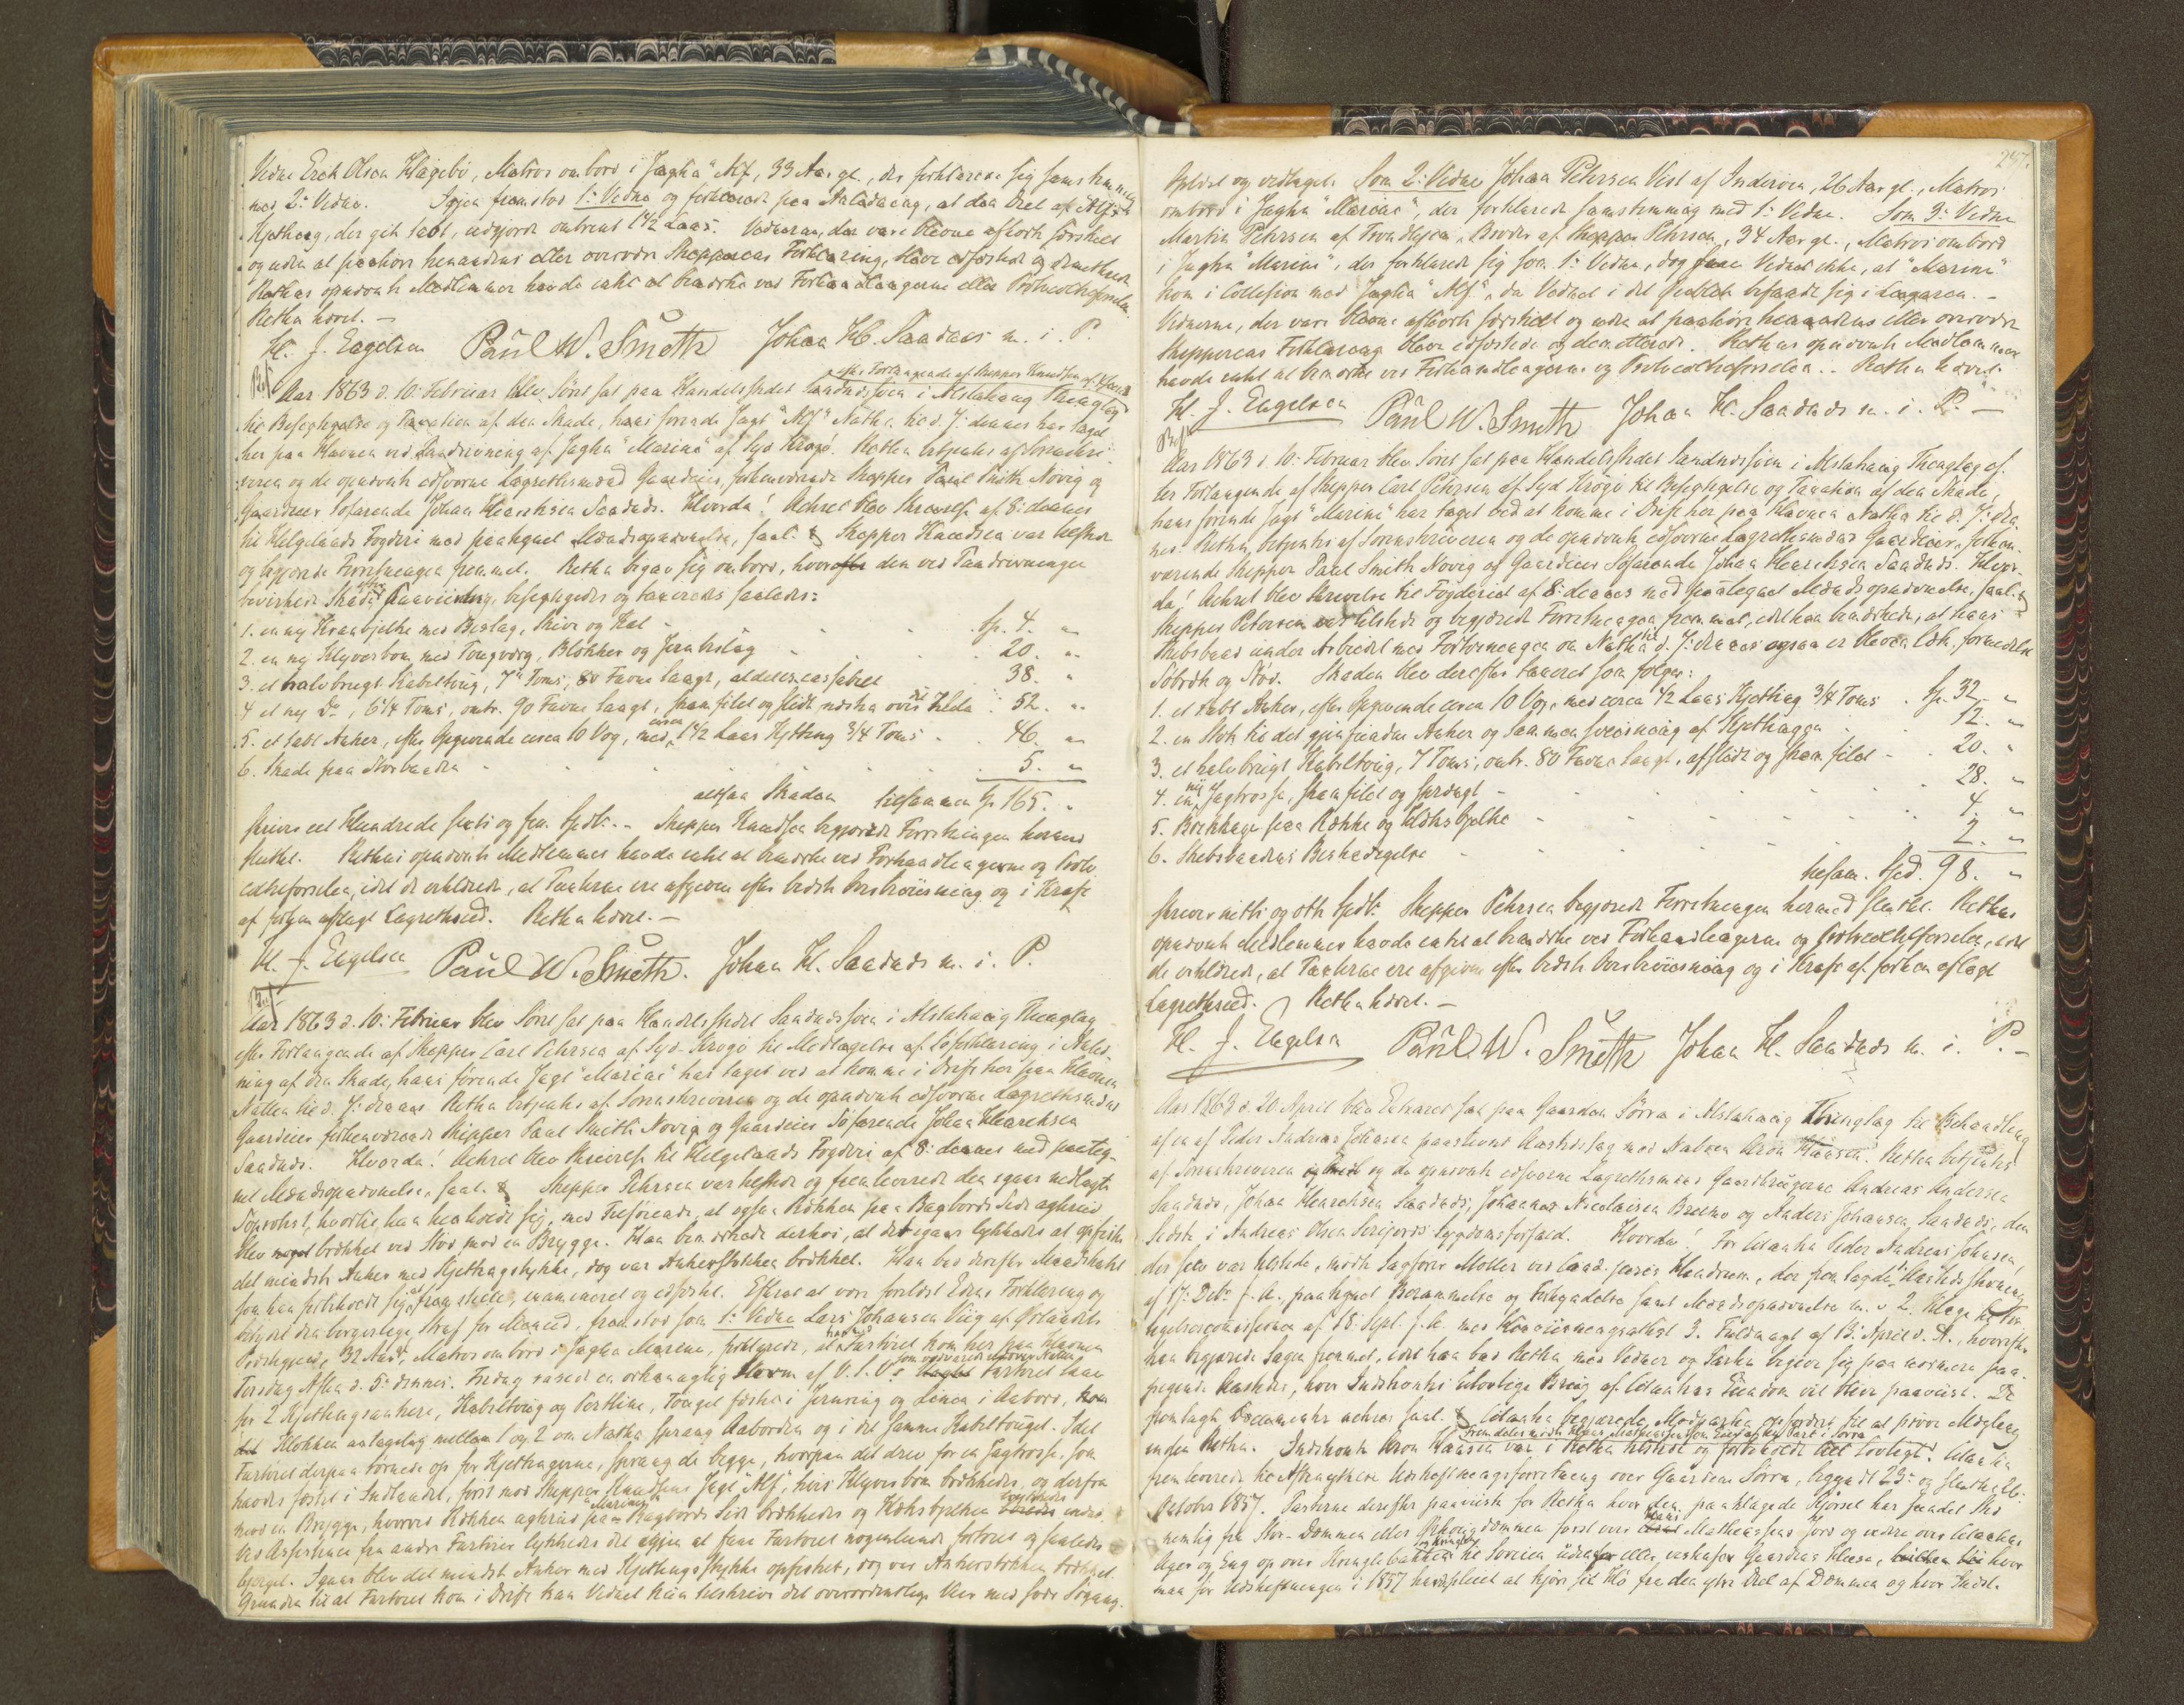 Vidne Erik Olsen Klågebö, Matros ombord i Jagten "Alf", 33 Aar gl., der forklarede sig samstemmende
med 2: Vidne. Igjen fremstod 1: Vidne og forklarede paa Anledning, at den Deel af Alfs
Kjetting, der gik tabt, udgjorde omtrent 1 1/2 Laas. Vidnerne, der vare blevne afhörte særskilt
og uden at paahöre hinandens eller overvære Skipperens Forklaring, bleve edfæstede og demitterede
Rettens opnævnte Medlemmer havde intet at bemærke ved Forhandlingerne eller Protocolteforselen.
Retten hævet. –
H. J. Engelsen Paul W. Smith Johan Kl. Sandnes m. i. P.
efter Forlangende af Skipper Knudsen af
Aar 1863 d. 10: Februar blev Söret sat paa Handelsstedet Sandnæssöen i Alstahaug Thinglag
til Besigtigelse og Taxation af den Skade, hans förende Jagt "Alf" Natten til d. 7: dennes har taget
her paa Havnen ved Paadrivning af Jagten "Marine" af Syd Krogö. Retten betjentes af Sorenskri-
veren og de opnævnte edsvorne Lagrettesmænd Gaardeier, forhenværende Skipper Paul Smith Novig og
Gaardeier Söfarende Johan Henriksen Sandnes. Hvorda! Acteret blev Skrivelse af 8: dennes
til Helgelands Fogderi med paategnet Mændsopnævnelse, saal. Skipper Knudsen var tilstede
og begjærede Forretningen fremmet. Retten begav sig ombord, hvorefter den ved Paadrivningen
bevirkede Skade efter Paaviisning, besigtigedes og taxeredes saaledes:
1. en ny Kranbjelke med Beslag, Skive og Kat - Sp. 4. "
2. en ny Klyverbom med Tougværg, Blokker og Jernbeslag 20. "
3. et halvbrugt Kabeltoug, 7" Toms, 80 Favne langt, aldeles casseret 38. "
4 et ny Do, 6 1/4 Toms, omtr. 90 Favne langt, skamfilet og slidt næsten over det hele 52. "
5. et tabt Anker, efter Opgivende circa 10 Vog, med circa 1 1/2 Laas Kjetting 3/4 Toms - 46. "
6. Skade paa Storbaaden 5. "
altsaa Skaden tilsammen Sp 165. "
skriver eet Hundrede sexti og fem Spdlr. - Skipper Knudsen begjærede Forretningen hermed
sluttet. Rettens opnævnte Medlemmer havde intet at bemærke ved Forhandlingerne og Proto-
colteforselen, idet de erklærede, at Taxterne ere afgivne efter bedste Overbeviisning og i Kraft
af forhen aflagt Lagrettesed. Retten hævet. –
H. J. Engelsen Paul W. Smith. Johan Kl. Sandnes m. i. P.
Aar 1863 d. 10: Februar blev Söret sat paa Handelsstedet Sandnæssöen i Alstahaug Thinglag
efter Forlangende af Skipper Carl Petersen af Syd-Krogö til Modtagelse af Söforklaring i Anled-
ning af den Skade, hans förende Jagt "Marine" har taget ved at komme i Drift her paa Havnen
Natten til d. 7: dennes. Retten betjentes af Sorenskriveren og de opnævnte edsvorne Lagrettesmænd
Gaardeier forhenværende Skipper Paul Smith Novig og Gaardeier Söfarende Johan Henriksen
Sandnes. Hvorda! Acteret blev Skrivelse til Helgelands Fogderi af 8: dennes med paateg-
net Mændsopnævnelse, saal. Skipper Petersen var tilstede og fremleverede den igaar modtagte
Söprotest, hvortil han henholdt sig, med Tilföiende, at ogsaa Rökken paa Bagbords Side agterud
blev brækket ved Stöd mod en Brygge. Han bemærkede derhos, at det igaar lykkedes at opfiske
det mindste Anker med Kjettingstykke, dog var Ankerstokken brækket. Han bad derefter Mandskabet
som han forbeholdt sig fremstille, examineret og edfæstet. Efterat at være forelæst Edens Forklaring og
betydet den borgerlige Straf for Meneed, fremstod som 1: Vidne Lars Johansen Viig af Örlandets
Præstegjeld, 32 Aar, Matros ombord i Jagten Marine, forklarede, at Fartöiet kom her paa Havnen
Torsdag Aften d. 5: dennes. Fredag rasede en orkanagtig Storm af V. S. V. som vedvarede Natten Fartöiet laae
for 2 Kjettingankere, Kabeltoug og Pertline, Touget fæstet i Jernring og Linen i Aabord,
Klokken antagelig mellem 1 og 2 om Natten sprang Aaborden og i det samme Kabeltouget. Idet
Fartöiet derpaa törnede op for Kjettingerne, sprang de begge, hvorpaa det drev for en Jagtrosse, som
havdes fæstet i Indlandet, först mod Skipper Knudsens Jagt "Alf", hvis Klyverbom brækkedes, og derfra
mod en Brygge, hvorved Rökken agterud paa "Marines" Bagbords Side brækkedes og Hæksbjelken
Ved Assistance fra andre Fartöier lykkedes det igjen at faae Fartöiet nogenlunde fortöiet og saaledes
bjerget. Igaar blev det mindste Anker med Kjettingstykke opfisket, dog var Ankerstokken brækket.
Grunden til at Fartöiet kom i Drift kan Vidnet kun tilskrive det overordentlige Veir med svær Sögang.
287.
Oplæst og vedtaget. Som 2: Vidne Johan Petersen Vist af Inderöen, 26 Aar gl., Matros
ombord i Jagten "Marine", der forklarede samstemmig med 1: Vidne. Som 3: Vidne
Martin Petersen af Trondhjem, Broder af Skipper Petersen, 34 Aar gl., Matros ombord
i Jagten "Marine", der forklarede sig som 1: Vidne, dog saae Vidnet ikke, at "Marine"
kom i Collision med Jagten "Alf", da Vidnet i det Öieblik befandt sig i Lugaren. –
Vidnerne, der vare blevne afhörte særskilt og uden at paahöre hinandens eller overvære
Skipperens Forklaring bleve edfæstede og demitterede. Rettens opnævnte Medlemmer
havde intet at bemærke ved Forhandlingerne og Protocolteforselen. - Retten hævet.
H. J. Engelsen Paul W. Smith Johan Kl. Sandnes m. i. P. –
Aar 1863 d. 10: Februar blev Söret sat paa Handelsstedet Sandnæssöen i Alstahaug Thinglag ef-
ter Forlangende af Skipper Carl Petersen af Syd Krogö til Besigtigelse og Taxation af den Skade,
hans förende Jagt "Marine" har taget ved at komme i Drift her paa Havnen Natten til d. 7: den-
nes. Retten betjentes af Sorenskriveren og de opnævnte edsvorne Lagrettesmænd Gaardeier, forhen-
værende Skipper Paul Smith Novig og Gaardeier Söfarende Johan Henriksen Sandnes. Hvor-
da! Acteret blev Skrivelse til Fogderiet af 8: dennes med paategnet Mændsopnævnelse, saal.
Skipper Petersen var tilstede og begjærede Forretningen fremmet, idet han bemærkede, at hans
Skibsbaad under Arbeidet med Fortöiningen om Natten til d. 7: dennes ogsaa er bleven læk, formedelst
Söbræk og Stöd. Skaden blev derefter taxeret som fölger:
1. et tabt Anker, efter Opgivende circa 10 Vog, med circa 1/2 Laas Kjetting 3/4 Toms . Sp. 32 "
2. en Stok til det gjenfundne Anker og Sammensveisning af Kjettingen 12. "
3. et halvbrugt Kabeltoug, 7 Toms, omtr. 80 Favne langt, afslidt og skamfilet - 20. "
4. en ny Jagtrosse, skamfilet og sprængt - 28. "
5. Brækkage paa Rökke og Hæksbjelke 4. "
6. Skibsbaadens Beskadigelse 2. "
tilsam. Spd. 98. "
skriver nitti og otte Spdlr. Skipper Petersen begjærede Forretningen hermed sluttet. Rettens
opnævnte Medlemmer havde intet at bemærke ved Forhandlingerne og Protocolteforselen, idet
de erklærede, at Taxterne ere afgivne efter bedste Overbeviisning og i Kraft af forhen aflagt
Lagrettesed. Retten hævet. –
H. J. Engelsen Paul W. Smith Johan Kl. Sandnes m. i. P. –
Aar 1863 d. 20 April blev Extraret sat paa Gaarden Sörra i Alstahaug Thinglag til Behandling
af en af Peder Andreas Johnsen paastevnt Aastedssag mod Naboen Aron Hansen. Retten betjentes
af Sorenskriveren og de opnævnte edsvorne Lagrettesmænd Gaardbrugerne Andreas Andersen
Sandnes, Johan Henriksen Sandnes, Johannes Nicolaisen Breimo og Anders Johansen Sandnes, den
sidste i Andreas Olsen Sygdomsforfald. Hvorda! For Citanten Peder Andreas Johnsen,
der selv var tilstede, mödte Sagförer Möller ved Cand. juris Hendrum, der fremlagde 1. Aastedsstevning
af 17: Debr. f. A. paategnet Berammelse og Forkyndelse samt Mændsopnævnelse m. v 2. Klage til For-
ligelsescommissionen af 18: Sept. f. A. med Henviisningsattest 3. Fuldmagt af 13: April d. A., hvorefter
han begjærede Sagen fremmet, idet han bad Retten med Vidner og Parter begive sig paa
Aastedet, hvor Indstevntes ulovlige Brug af Citantens Eiendom vil blive paaviist. De
fremlagte Documenter acteres saal. Citanten begjærede Modparten opfordret til at pröve Mægling
inden Retten. Indstevnte Aron Hansen var i Retten tilstede og forbeholdt Alt Lovligt. Citanten
fremleverede til Afbenyttelse Udskiftningsforretning over Gaarden Sörra, begyndt 23: og sluttet 26:
October 1857. Parterne derefter paaviiste for Retten hvor den paaklagede Kjörsel har fundet Sted
nemlig fra Stor-Dammen eller först over Hans Mathiassens Jord og videre over Citantens
Ager og Eng op over til eller vestenfor Gaardens Huse, hvor
man för Udskiftningen i 1857 havde pleiet at kjöre sit Hö fra den ytre Deel af Dammen og hvor Indst.